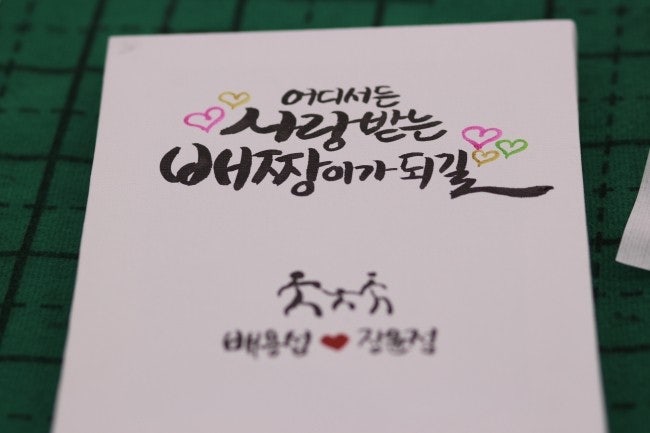 어디서든
사랑 받는
배짱이가 되길
배용섭 장윤정